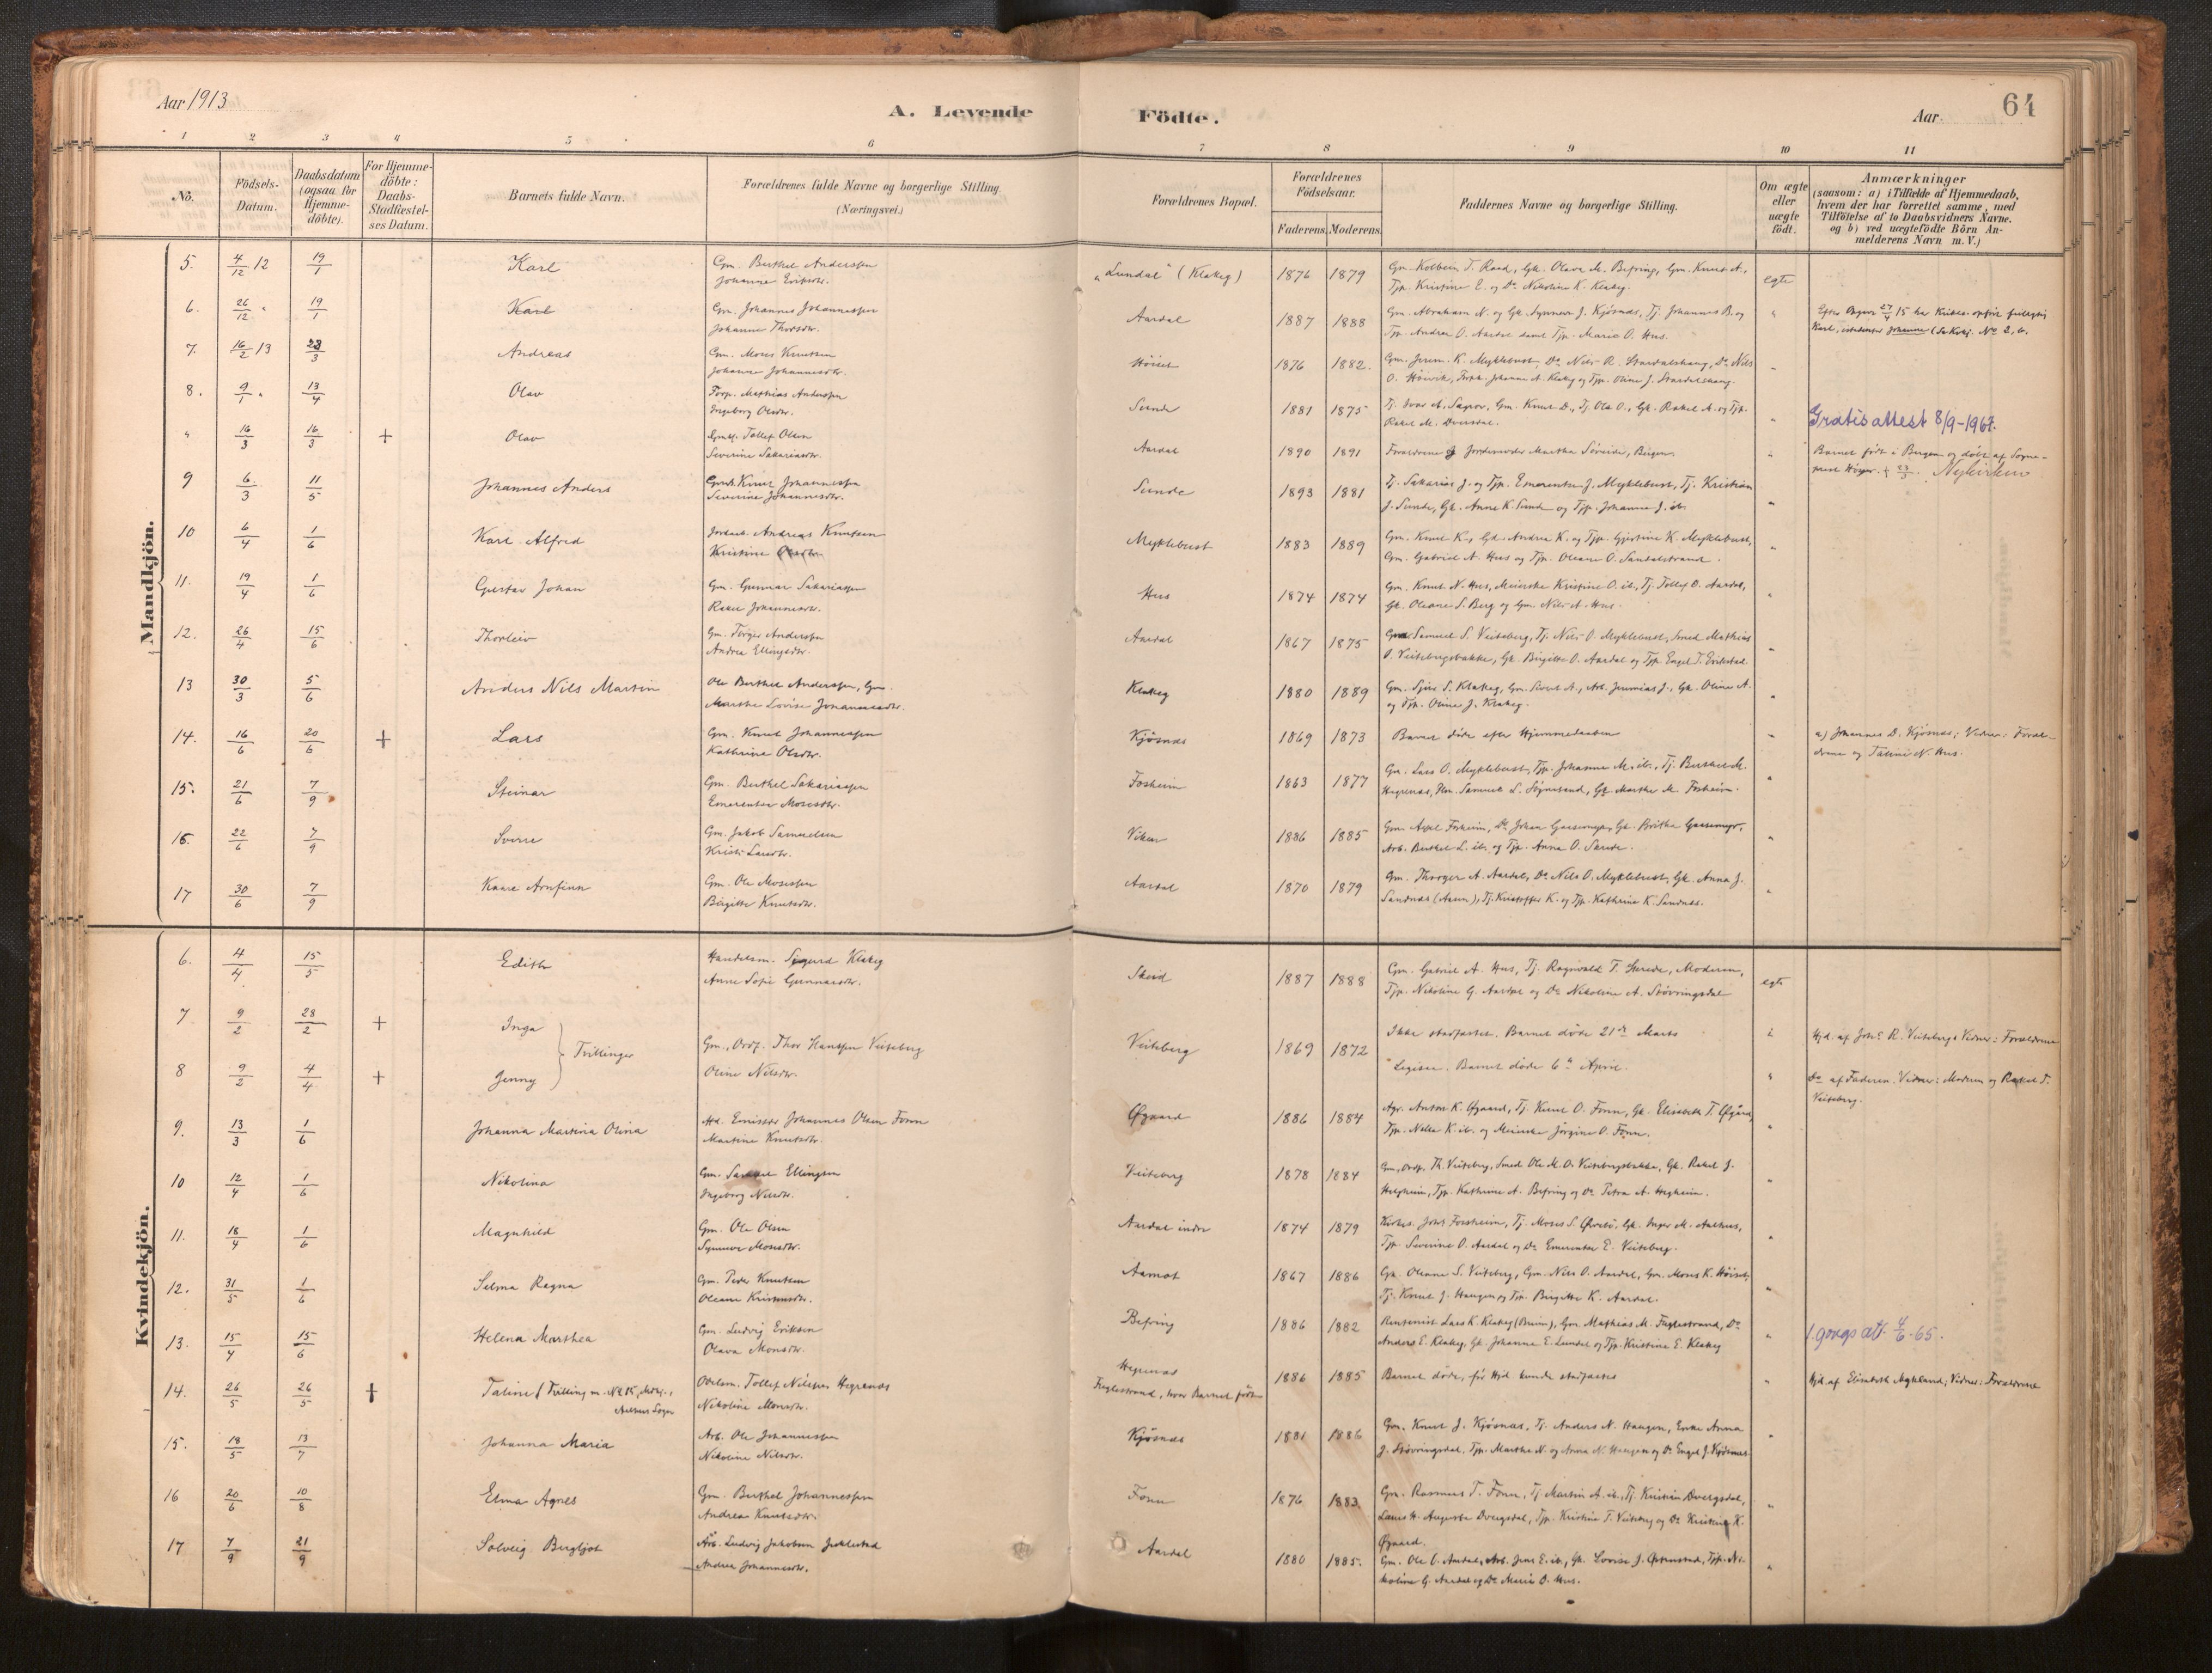 Aar 1913
A. Levende
Födte.
Aar
64
1 2 3 4 5 6 7 8 9 10 11
No.
Födsels-
Datum.
Daabsdatum
(ogsaa for
Hjemme-
döbte).
For Hjemme-
döbte:
Daabs-
Stadfæstel-
ses Datum.
Barnets fulde Navn.
Forældrenes fulde Navne og borgerlige Stilling.
(Næringsvei.)
Forældrenes Bopæl.
Forældrenes
Födselsaar.
Faderens. Moderens.
Faddernes Navne og borgerlige Stilling.
Om ægte
eller
uægte
födt.
Anmærkninger
(saasom: a) i Tilfælde af Hjemmedaab,
hvem der har forrettet samme, med
Tilföielse af to Daabsvidners Navne.
og b) ved uægtefödte Börn An-
melderens Navn m. V.)
Mandkjön.
5. 4/12 12 19/1 Karl Gm. Berthel Anderssen
Johanne Eriksdtr.
"Lundal" (Klakeg) 1876 1879 Gm. Kolbein T. Raad, Gk. Olava M. Befring, Gm. Knut A.,
Tjp. Kristine E. og Do Nikoline K. Klakeg. egte
6. 26/12 " 19/1 Karl Gm. Johannes Johannessen
Johanne Thorsdtr.
Aardal 1887 1888 Gm. Abraham N. og Gk. Synneva J. Kjösnæs, Tj. Johannes B. og
Tjp. Andrea O. Aardal samt Tjp. Marie O. Hus. "
7. 16/2 13 23/3 Andreas Gm. Moses Knutsen
Johanne Johannesdtr.
Höiset 1876 1882. Gm. Jerem. K. Myklebust, Do Nils R. Stardalshaug, Do Nils
O. Höivik, Johanne A. Klakeg og Tjp. Oline J. Stardalshaug. "
8. 9/1 " 13/4 Olav Forp. Mathias Anderssen
Ingeborg Olsdtr.
Sunde 1881 1875 Tj. Ivar A. Sægrov, Gm. Knut D., Tj. Ola O., Gk. Rakel A. og Tjp.
Rakel M. Dvergsdal. " Gratisattest 8/9-1967.
" 16/3 16/3 + Olav Tollef Olsen
Severine Sakariasdtr.
Aardal 1890 1891 Forældrene og Jordemoder Martha Söreide, Bergen. " Barnet født i Bergen og døbt af Sogne-
prest + 23/3. Nykirken
9 6/3 11/5 Johannes Anders Knut Johannessen
Severine Johannesdtr.
Sunde 1893 1881 Tj. Sakarias J. og Tjp. Emerentse J. Myklebust, Tj. Kristian
J. Sunde, Gk. Anne K. Sunde og Tjp. Johanne J. ib. "
10 6/4 1/6 Karl Alfred Andreas Knutsen
Kristine Olsdtr.
Myklebust 1883 1889 Gm. Knut K., Gd. Andrea K. og Tjp. Gjertine K. Myklebust,
Gm. Gabriel A. Hus og Tjp. Oleane O. Sandalstrand. "
11. 19/4 1/6 Gustav Johan Gm. Gunnar Sakariassen
Rakel Johannesdtr.
Hus 1874 1874 Gm. Knut N. Hus, Meierske Kristine O. ib., Tj. Tollef O. Aardal,
Gk. Oleane S. Berg og Gm. Nils A. Hus. "
12. 26/4 15/6 Thorleiv Gm. Torger Anderssen
Andrea Ellingsdtr.
Aardal 1867 1875 Samuel S. Veiteberg, Tj. Nils O. Myklebust, Smed Mathias
O. Veitebergsbakke, Gk. Birgitte O. Aardal og Tjp. Engel T. Erikstad. "
13 30/3 5/6 Anders Nils Martin Ole Berthel Anderssen, Gm.
Marthe Lovise Johannesdtr.
Klakeg 1880 1889 Gm. Sjur S. Klakeg, Gm. Sivert A., Arb. Jeremias J., Gk. Oline A.
og Tjp. Oline J. Klakeg. "
14. 16/6 20/6 + Lars Gm. Knut Johannessen
Kathrine Olsdtr.
Kjösnæs 1869 1873 Barnet døde efter Hjemmedaaben " a) Johannes D. Kjösnæs; Vidner: Foræl-
drene og Taline N. Hus.
15. 21/6 7/9 Steinar Gm. Berthel Sakariassen
Emerentse Mosesdtr.
Fosheim 1863 1877 Gm. Lars O. Myklebust, Tjp. Johanne M. ib., Tj. Berthel M.
Hegrenæs, Samuel L. Sögnesand, Gk. Marthe M. Fosheim. "
16. 22/6 7/9 Sverre Gm. Jakob Samuelsen
Kristi Larsdtr.
Viken 1886 1885 Gm. Axel Fosheim, Do Johan Gaasemyr, Gk. Brithe Gaasemyr,
Arb. Berthel L. ib. og Tjp. Anna O. Skrede. "
17 30/6 7/9 Kaare Arnfinn Gm. Ole Mosessen
Birgitte Knutsdtr.
Aardal 1870 1879 Gm. Thorger A. Aardal, Do Nils O. Myklebust, Gk. Anna J.
Sandnæs (Aasen), Tj. Kristoffer K. og Tjp. Kathrine K. Sandnæs. "
Kvindekjön.
6. 4/4 15/5 Edith Handelsm. Sigurd Klakeg
Anne Sofie Gunnarsdtr.
Skeid 1887 1888 Gm. Gabriel A. Hus, Tj. Ragnvald T. Skrede, Moderen,
Tjp. Nikoline G. Aardal og Do Nikoline A. Stövringsdal egte
7 9/2 28/2 + Inga
Tvillinger
Gm., Ordf. Thor Hanssen Veiteberg
Oline Nilsdtr.
Veiteberg 1869 1872 Ikke stadfæstet. Barnet døde 21de Marts " Hjd. af Johs. R. Veiteberg. Vidner: Forældrene
8 9/2 4/4 + Jenny Ligesaa. Barnet døde 6te April. " Do af Faderen. Vidner: Modern og Rakel T.
Veiteberg.
9. 13/3 1/6 Johanna Martina Olina Emissær Johannes Olsen Fonn
Martine Knutsdtr.
Øygaard 1886 1884 Agr. Anton K. Øygaard, Tj. Knut O. Fonn, Gk. Elisabeth T. Øygård,
Tjp. Nille K. ib. og Meierske Jörgine O. Fonn. "
10 12/4 1/6 Nikolina Gm. Samuel Ellingsen
Ingeborg Nilsdtr.
Veiteberg 1878 1884 Gm., Ordf. Th. Veiteberg, Smed Ole M. O. Veitebergsbakke, Gk. Rakel J.
Helgheim, Tjp. Kathrine A. Befring og Do Petra A. Hegheim. "
11. 18/4 1/6 Magnhild Gm. Ole Olsen
Synneve Monsdtr.
Aardal indre 1874 1879 Forsheim, Tj. Moses S. Øvrebö, Gk. Inger M. Aalhus,
Tjp. Severine O. Aardal og Do Emerentse E. Veiteberg. "
12. 31/5 1/6 Selma Ragna Gm. Peder Knutsen
Oleane Kristensdtr.
Aamot 1867 1886 Gk. Oleane S. Veiteberg, Gm. Nils O. Aardal, Gm. Moses K. Höiset,
Tj. Knut J. Haugen og Tjp. Birgitte K. Aardal. "
13. 15/4 15/6 Helena Marthea Gm. Ludvig Eriksen
Olava Monsdtr.
Befring 1886 1882 Rentenist Lars K. Klakeg (Bruin), Gm. Mathias M. Fuglestrand, Do
Anders E. Klakeg, Gk. Johanne E. Lundal og Tjp. Kristine E. Klakeg " 1. gongs att. 4/6.65.
14. 26/5 26/5 + Taline (Tvilling m. No 15, Mdkj.,
Aalhus Sogn
Odelsm. Tollef Nilssen Hegrenæs
Nikoline Monsdtr.
Hegrenæs
Fuglestrand, hvor Barnet født 1886 1885 Barnet døde, før Hjd. kunde stadfæstes " Hjd. af Elisabeth Myklend; Vidner: Forældrene
15. 18/5 13/7 Johanna Maria Arb. Ole Johannessen
Nikoline Nilsdtr.
Kjösnæs 1881 1886 Gm. Knut J. Kjösnæs, Tj. Anders N. Haugen, Enke Anna
J. Stövringsdal, Tjp. Marthe N. og Anna N. Haugen og Do Engel J. Kjösnæs "
16 20/6 10/8 Elma Agnes Gm. Berthel Johannessen
Andrea Knutsdtr.
Fonn 1876 1883. Gm. Rasmus T. Fonn, Tj. Martin A. ib., Tj. Kristian Dvergsdal,
Augusta Dvergsdal, Tjp. Kristine T. Veiteberg og Do Kristine K.
Øygaard. "
17 7/9 21/9 Solveig Bergljot Arb. Ludvig Jakobsen
Andrea Johannesdtr.
Aardal 1880 1885. Gm. Ole O. Aardal, Arb. Jens E. ib., Gk. Lovise J. Tjp. Ni-
koline G. Aardal og Do Marie O. Hus. "